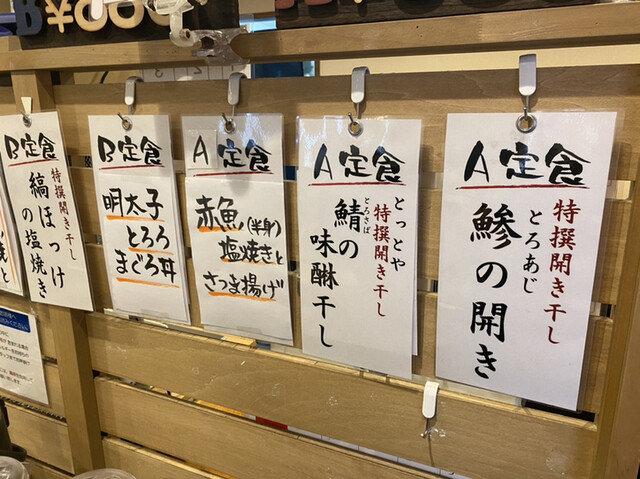 A定食
特撰開き干し
とろあじ
鯵の開き
A定食
とっとや
特撰開き干し
とろさば
鯖の
味醂干し
A定食
赤魚(半身)
塩焼きと
さつま揚げ
B定食
明太子
とろろ
まぐろ丼
B定食
特撰開き干し
縞ほっけ
の塩焼き